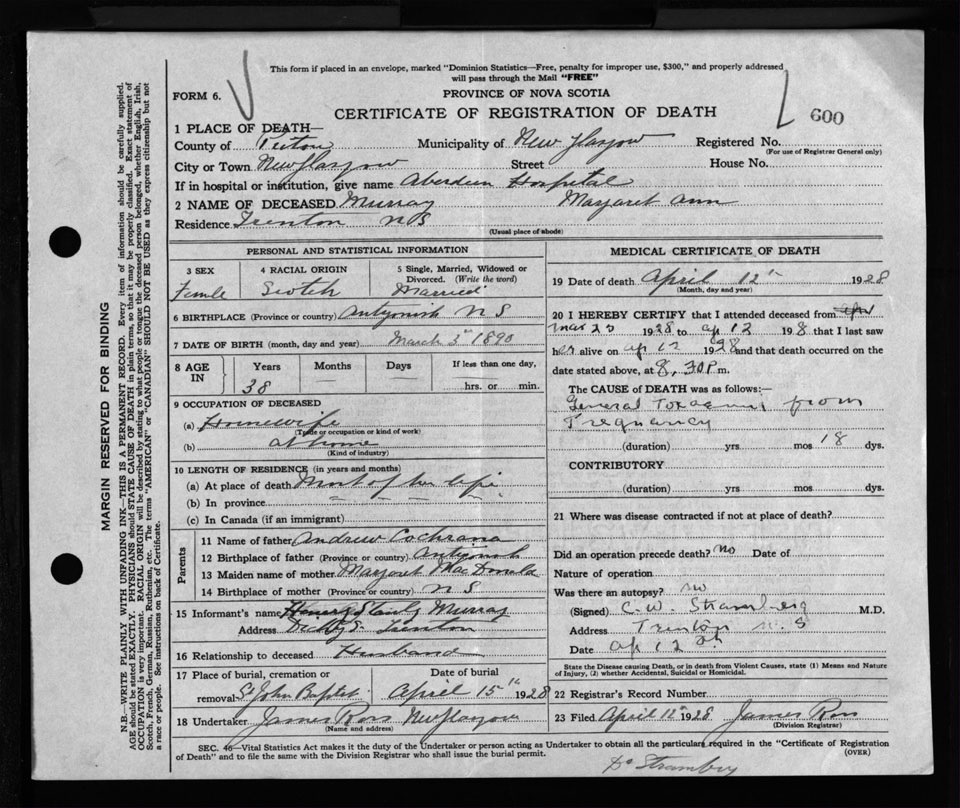 This form if placed in an envelope, marked "Dominion Statistics—Free, penalty for improper use, $300," and properly addressed
will pass through the Mail "FREE"
FORM 6.
PROVINCE OF NOVA SCOTIA
CERTIFICATE OF REGISTRATION OF DEATH
600
1 PLACE OF DEATH—
County of Pictou Municipality of New Glasgow Registered No.
(For use of Registrar General only)
City or Town New Glasgow Street House No.
If in hospital or institution, give name Aberdeen Hospital
2 NAME OF DECEASED Murray Margaret Ann
Residence Trenton N S
(Usual place of abode)
PERSONAL AND STATISTICAL INFORMATION
3 SEX 4 RACIAL ORIGIN 5 Single, Married, Widowed or
Divorced. (Write the word)
Female Scotch Married
6 BIRTHPLACE (Province or country) Antigonish N S
7 DATE OF BIRTH (month, day and year) March 3rd 1890
8 AGE IN Years Months Days If less than one day,
38 — — hrs. or min.
9 OCCUPATION OF DECEASED
(a) Housewife
(Trade or occupation or kind of work)
(b) at home
(Kind of industry)
10 LENGTH OF RESIDENCE (in years and months)
(a) At place of death Most of her life
(b) In province
(c) In Canada (if an immigrant)
Parents
11 Name of father Andrew
12 Birthplace of father (Province or country) Antigonish
13 Maiden name of mother Margaret MacDonald
14 Birthplace of mother (Province or country) N S
15 Informant's name Murray
Address Trenton
16 Relationship to deceased Husband
17 Place of burial, cremation or Date of burial
removal St John Baptist April 15th 1928
18 Undertaker James Ross New Glasgow
(Name and address)
MEDICAL CERTIFICATE OF DEATH
19 Date of death April 12th 1928
(Month, day and year)
20 I HEREBY CERTIFY that I attended deceased from
Mar 23 1928 to ap 12 1928 that I last saw
her alive on ap 12 1928 and that death occurred on the
date stated above, at 8.30 P m.
The CAUSE of DEATH was as follows:—
General Toxaemia from
Pregnancy
(duration) yrs mos 18 dys.
CONTRIBUTORY
(duration) yrs mos dys.
21 Where was disease contracted if not at place of death?
Did an operation precede death? no Date of
Nature of operation
Was there an autopsy? no
(Signed) C. W. M.D.
Address Trenton N. S
Date ap 12
State the Disease causing Death, or in death from Violent Causes, state (1) Means and Nature
of Injury, (2) whether Accidental, Suicidal or Homicidal.
22 Registrar's Record Number
23 Filed April 12 1928 James Ross
(Division Registrar)
SEC. 46—Vital Statistics Act makes it the duty of the Undertaker or person acting as Undertaker to obtain all the particulars required in the "Certificate of Registration
of Death" and to file the same with the Division Registrar who shall issue the burial permit.
(OVER)
MARGIN RESERVED FOR BINDING
N.B.—WRITE PLAINLY WITH UNFADING INK—THIS IS A PERMANENT RECORD. Every item of information should be carefully supplied.
AGE should be stated EXACTLY. PHYSICIANS should STATE CAUSE OF DEATH in plain terms, so that it may be properly classified. Exact statement of
OCCUPATION is very important. RACIAL ORIGIN will be described by stating to what people or tongue the deceased person belonged, whether English, Irish,
Scotch, French, German, Russian, Ruthenian, etc. The terms "AMERICAN" or "CANADIAN" SHOULD NOT BE USED as they express citizenship but not
a race or people. See instructions on back of Certificate.